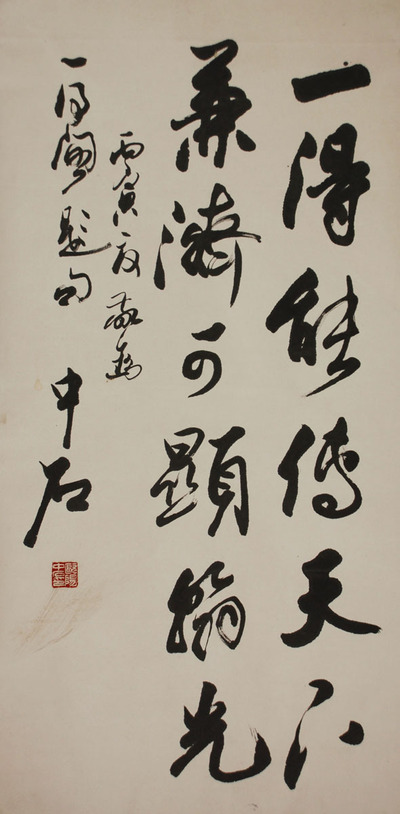 一得能传天下
兼濟可顯翰光
丙寅夏敬为
一得阁题句
中石